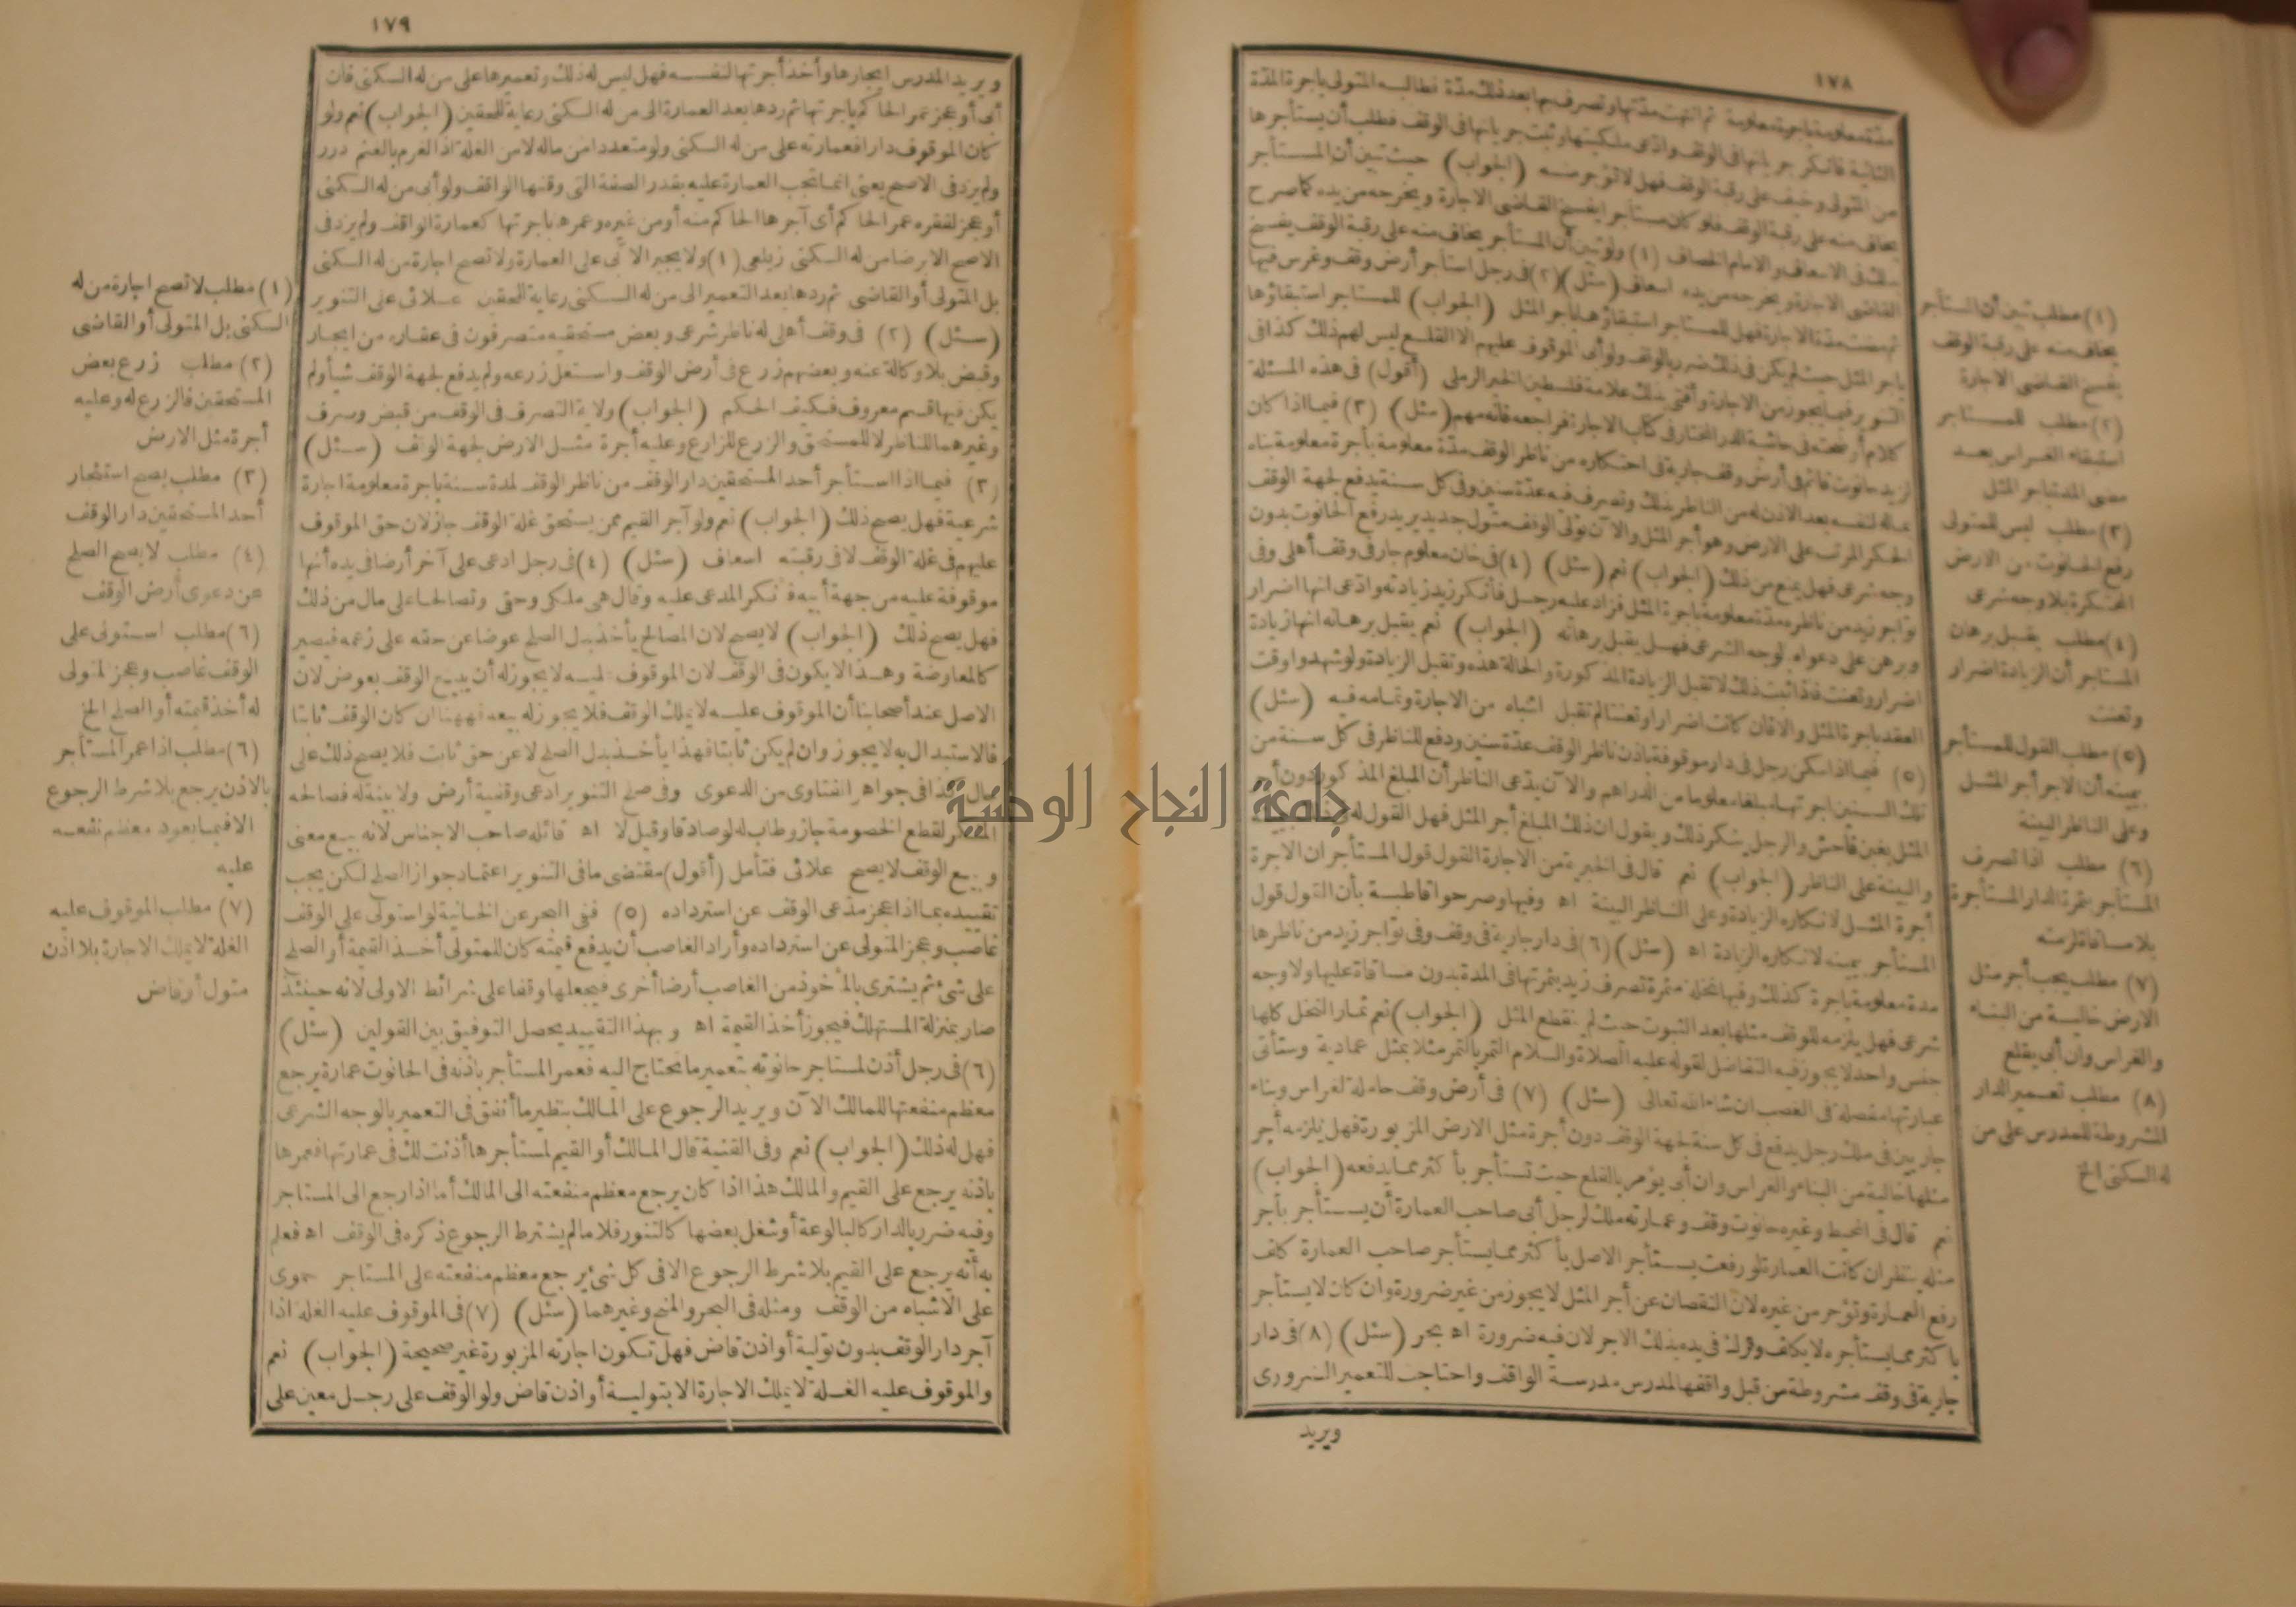 ١٧٨
مدة معلومة باجرة معلومة ثم انتهت مدتها وتصرف بها بعد ذلك مدة فطالبه المتولى باجرة المدة
الثانية فانكر جريانها فى الوقف وادّى ملكيتها وثبت جريانها فى الوقف فطلب أن يستأجرها
من المتولى وخيف على رقبة الوقف فهل لا تؤجر منه (الجواب) حيث تبين أن المستأجر
يخاف منه على رقبة الوقف فلو كان مستأجرا يفسخ القاضى الاجارة ويخرجه من يده كما صرح
بذلك فى الاسعاف والامام الخصاف (١) ولو تبين أن المستأجر يخاف منه على رقبة الوقف يفسخ
القاضى الاجارة ويخرجه من يده اسعاف (سئل) (٢) فى رجل استأجر أرض وقف وغرس فيها
ثم مضت مدة الاجارة فهل للمستاجر استبقاؤها باجر المثل (الجواب) للمستاجر استبقاؤها
باجر المثل حيث لم يكن فى ذلك ضرر بالوقف ولو أبى الموقوف عليهم الا القلع ليس لهم ذلك كذا فى
التنوير فيما يجوز من الاجارة وأفتى بذلك علامة فلسطين الخير الرملى (أقول) فى هذه المسئلة
كلام أوضحته فى حاشية الدر المختار فى كتاب الاجارة فراجعه فانه مهم (سئل) (٣) فيما اذا كان
لزيد حانوت قائم فى أرض وقف جارية فى احتكاره من ناظر الوقف مدة معلومة باجرة معلومة بناه
بماله لنفسه بعد الاذن له من الناظر بذلك وتصرف فيه عدة سنين وفى كل سنة يدفع لجهة الوقف
الحكر المرتب على الارض وهو أجر المثل والآن تولى الوقف متول جديد يريد رفع الحانوت بدون
وجه شرعى فهل يمنع من ذلك (الجواب) نعم (سئل) (٤) فى خان معلوم جار فى وقف أهلى وفى
تواجر زيد من ناظره مدة معلومة باجرة المثل فزاد عليه رجل فأنكر زيد زيادته وادّعى انها اضرار
وبرهن على دعواه لوجه الشرعى فهل يقبل برهانه (الجواب) نعم يقبل برهانه انها زيادة
اضرار وتعنت فاذا ثبت ذلك لا تقبل الزيادة المذكورة والحالة هذه وتقبل الزيادة ولو شهدوا وقت
العقد باجرة المثل والا فان كانت اضرارا وتعنتا لم تقبل اشباه من الاجارة وتمامه فيه (سئل)
(٥) فيما اذا سكن رجل فى دار موقوفة باذن ناظر الوقف عدة سنين ودفع للناظر فى كل سنة من
تلك السنين اجرتها مبلغا معلوما من الدراهم والآن يدّعى الناظر أن المبلغ المذكور دون أجر
المثل بغبن فاحش والرجل ينكر ذلك ويقول ان ذلك المبلغ أجر المثل فهل القول له
والبينة على الناظر (الجواب) نعم قال فى الخيرية من الاجارة القول قول المستأجر ان الاجرة
أجرة المثل لانكاره الزيادة وعلى الناظر البينة اه وفيها وصرحوا قاطبة بأن القول قول
المستأجر بيمينه لانكاره الزيادة اه (سئل) (٦) فى دار جارية فى وقف وفى تواجر زيد من ناظرها
مدة معلومة باجرة كذلك وفيها نخلة مثمرة تصرف زيد بثمرتها فى المدة بدون مساقاة عليها ولا وجه
شرعى فهل يلزمه للوقف مثلها بعد الثبوت حيث لم ينقطع المثل (الجواب) نعم ثمار النخل كلها
جنس واحد لا يجوز فيه التفاضل لقوله عليه الصلاة والسلام التمر بالتمر مثلا بمثل عمادية وستأتى
عبارتها مفصلة فى الغصب ان شاء الله تعالى (سئل) (٧) فى أرض وقف حاملة لغراس وبناء
جاريين فى ملك رجل يدفع فى كل سنة لجهة الوقف دون أجرة مثل الارض المزبورة فهل يلزمه أجر
مثلها خالية من البناء والغراس وان أبى يؤمر بالقلع حيث تستأجر بأكثر مما يدفعه (الجواب)
نعم قال فى المحيط وغيره حانوت وقف وعمارته ملك لرجل أبى صاحب العمارة أن يستأجر بأجر
مثله ينظر ان كانت العمارة لو رفعت يستأجر الاصل بأكثر مما يستأجر صاحب العمارة كلف
رفع العمارة وتؤجر من غيره لان النقصان عن أجر المثل لا يجوز من غير ضرورة وان كان لا يستأجر
بأكثر مما يستأجره لا يكلف وتترك فى يده بذلك الاجر لان فيه ضرورة اه بحر (سئل) (٨) فى دار
جارية فى وقف مشروطة من قبل واقفها لمدرس مدرسة الواقف واحتاجت للتعمير الضرورى
ويريد
(١) مطلب تبين أن المستأجر
يخاف منه على رقبة الوقف
يفسخ القاضى الاجارة
(٢) مطلب للمستاجر
استبقاء الغراس بعد
مضى المدة باجر المثل
(٣) مطلب ليس للمتولى
رفع الحانوت من الارض
المحتكرة بلا وجه شرعى
(٤) مطلب يقبل برهان
المستاجر أن الزيادة اضرار
وتعنت
(٥) مطلب القول للمستأجر
بيمينه أن الاجر أجر المثل
وعلى الناظر البينة
(٦) مطلب اذا تصرف
المستأجر بثمرة الدار المستأجرة
بلا مساقاة لزمته
(٧) مطلب يجب أجر مثل
الارض خالية من البناء
والغراس وان أبى يقلع
(٨) مطلب تعمير الدار
المشروطة للمدرس على من
له السكنى الخ
١٧٩
ويريد المدرس ايجارها وأخذ أجرتها لنفسه فهل ليس له ذلك وتعميرها على من له السكنى فان
أبى أو عجز عمر الحاكم باجرتها ثم ردها بعد العمارة الى من له السكنى رعاية للحقين (الجواب) نعم ولو
كان الموقوف دارا فعمارته على من له السكنى ولو متعددا من ماله لا من الغلة اذ الغرم بالغنم درر
ولم يزد فى الاصح يعنى انما تجب العمارة عليه بقدر الصفة التى وقفها الواقف ولو أبى من له السكنى
أو عجز لفقره عمر الحاكم أى آجرها الحاكم منه أو من غيره وعمرها باجرتها كعمارة الواقف ولم يزد فى
الاصح الا برضا من له السكنى زيلعى (١) ولا يجبر الآبى على العمارة ولا تصح اجارة من له السكنى
بل المتولى أو القاضى ثم ردها بعد التعمير الى من له السكنى رعاية للحقين علائى على التنوير
(سئل) (٢) فى وقف أهلى له ناظر شرعى وبعض مستحقيه متصرفون فى عقاره من ايجار
وقبض بلا وكالة عنه وبعضهم زرع فى أرض الوقف واستغل زرعه ولم يدفع لجهة الوقف شيأ ولم
يكن فيها قسم معروف فكيف الحكم (الجواب) ولاية التصرف فى الوقف من قبض وصرف
وغيرهما للناظر لا للمستحق والزرع للزارع وعليه أجرة مثل الارض لجهة الوقف (سئل)
(٣) فيما اذا استأجر أحد المستحقين دار الوقف من ناظر الوقف لمدة سنة باجرة معلومة اجارة
شرعية فهل يصح ذلك (الجواب) نعم ولو آجر القيم ممن يستحق غلة الوقف جاز لان حق الموقوف
عليهم فى غلة الوقف لا فى رقبته اسعاف (سئل) (٤) فى رجل ادعى على آخر أرضا فى يده أنها
موقوفة عليه من جهة أبيه فأنكر المدعى عليه وقال هى ملكى وحقى وتصالحا على مال من ذلك
فهل يصح ذلك (الجواب) لا يصح لان المصالح يأخذ بدل الصلح عوضا عن حقه على زعمه فيصير
كالمعاوضة وهذا لا يكون فى الوقف لان الموقوف عليه لا يجوز له أن يبيع الوقف بعوض لان
الاصل عند أصحابنا أن الموقوف عليه لا يملك الوقف فلا يجوز له بيعه فههنا ان كان الوقف ثابتا
فالاستبدال به لا يجوز وان لم يكن ثابتا فهذا يأخذ بدل الصلح لا عن حق ثابت فلا يصح ذلك على
حال كذا فى جواهر الفتاوى من الدعوى وفى صلح التنوير ادعى وقفية أرض ولا بينة له فصالحه
المنكر لقطع الخصومة جاز وطاب له لو صادقا وقيل لا اه قائله صاحب الاجناس لانه بيع معنى
وبيع الوقف لا يصح علائى فتأمل (أقول) مقتضى ما فى التنوير اعتماد جواز الصلح لكن يجب
تقييده بما اذا عجز مدعى الوقف عن استرداده (٥) ففى البحر عن الخانية لو استولى على الوقف
غاصب وعجز المتولى عن استرداده وأراد الغاصب أن يدفع قيمته كان للمتولى أخذ القيمة أو الصلح
على شئ ثم يشترى بالمأخوذ من الغاصب أرضا أخرى فيجعلها وقفا على شرائط الاولى لانه حينئذ
صار بمنزلة المستهلك فيجوز أخذ القيمة اه وبهذا التقييد يحصل التوفيق بين القولين (سئل)
(٦) فى رجل أذن لمستاجر حانوته بتعمير ما تحتاج اليه فعمر المستأجر باذنه فى الحانوت عمارة يرجع
معظم منفعتها للمالك الآن ويريد الرجوع على المالك بنظير ما أنفق فى التعمير بالوجه الشرعى
فهل له ذلك (الجواب) نعم وفى القنية قال المالك أو القيم لمستأجرها أذنت لك فى عمارتها فعمرها
باذنه يرجع على القيم والمالك هذا اذا كان يرجع معظم منفعته الى المالك أما اذا رجع الى المستاجر
وفيه ضرر بالدار كالبالوعة أو شغل بعضها كالتنور فلا ما لم يشترط الرجوع ذكره فى الوقف اه فعلم
به أنه يرجع على القيم بلا شرط الرجوع الا فى كل شئ يرجع معظم منفعته على المستاجر حموى
على الاشباه من الوقف ومثله فى البحر والمنح وغيرهما (سئل) (٧) فى الموقوف عليه الغلة اذا
آجر دار الوقف بدون تولية أو اذن قاض فهل تكون اجارته المزبورة غير صحيحة (الجواب) نعم
والموقوف عليه الغلة لا يملك الاجارة الا بتولية أو اذن قاض ولو الوقف على رجل معين على
(١) مطلب لا تصح اجارة من له
السكنى بل المتولى أو القاضى
(٢) مطلب زرع بعض
المستحقين فالزرع له وعليه
أجرة مثل الارض
(٣) مطلب يصح استئجار
أحد المستحقين دار الوقف
(٤) مطلب لا يصح الصلح
عن دعوى أرض الوقف
(٦) مطلب استولى على
الوقف غاصب وعجز المتولى
له أخذ قيمته أو الصلح الخ
(٦) مطلب اذا عمر المستأجر
بالاذن يرجع بلا شرط الرجوع
الا فيما يعود معظم نفعه
عليه
(٧) مطلب الموقوف عليه
الغلة لا يملك الاجارة بلا اذن
متول أو قاض
جامعة النجاح الوطنية